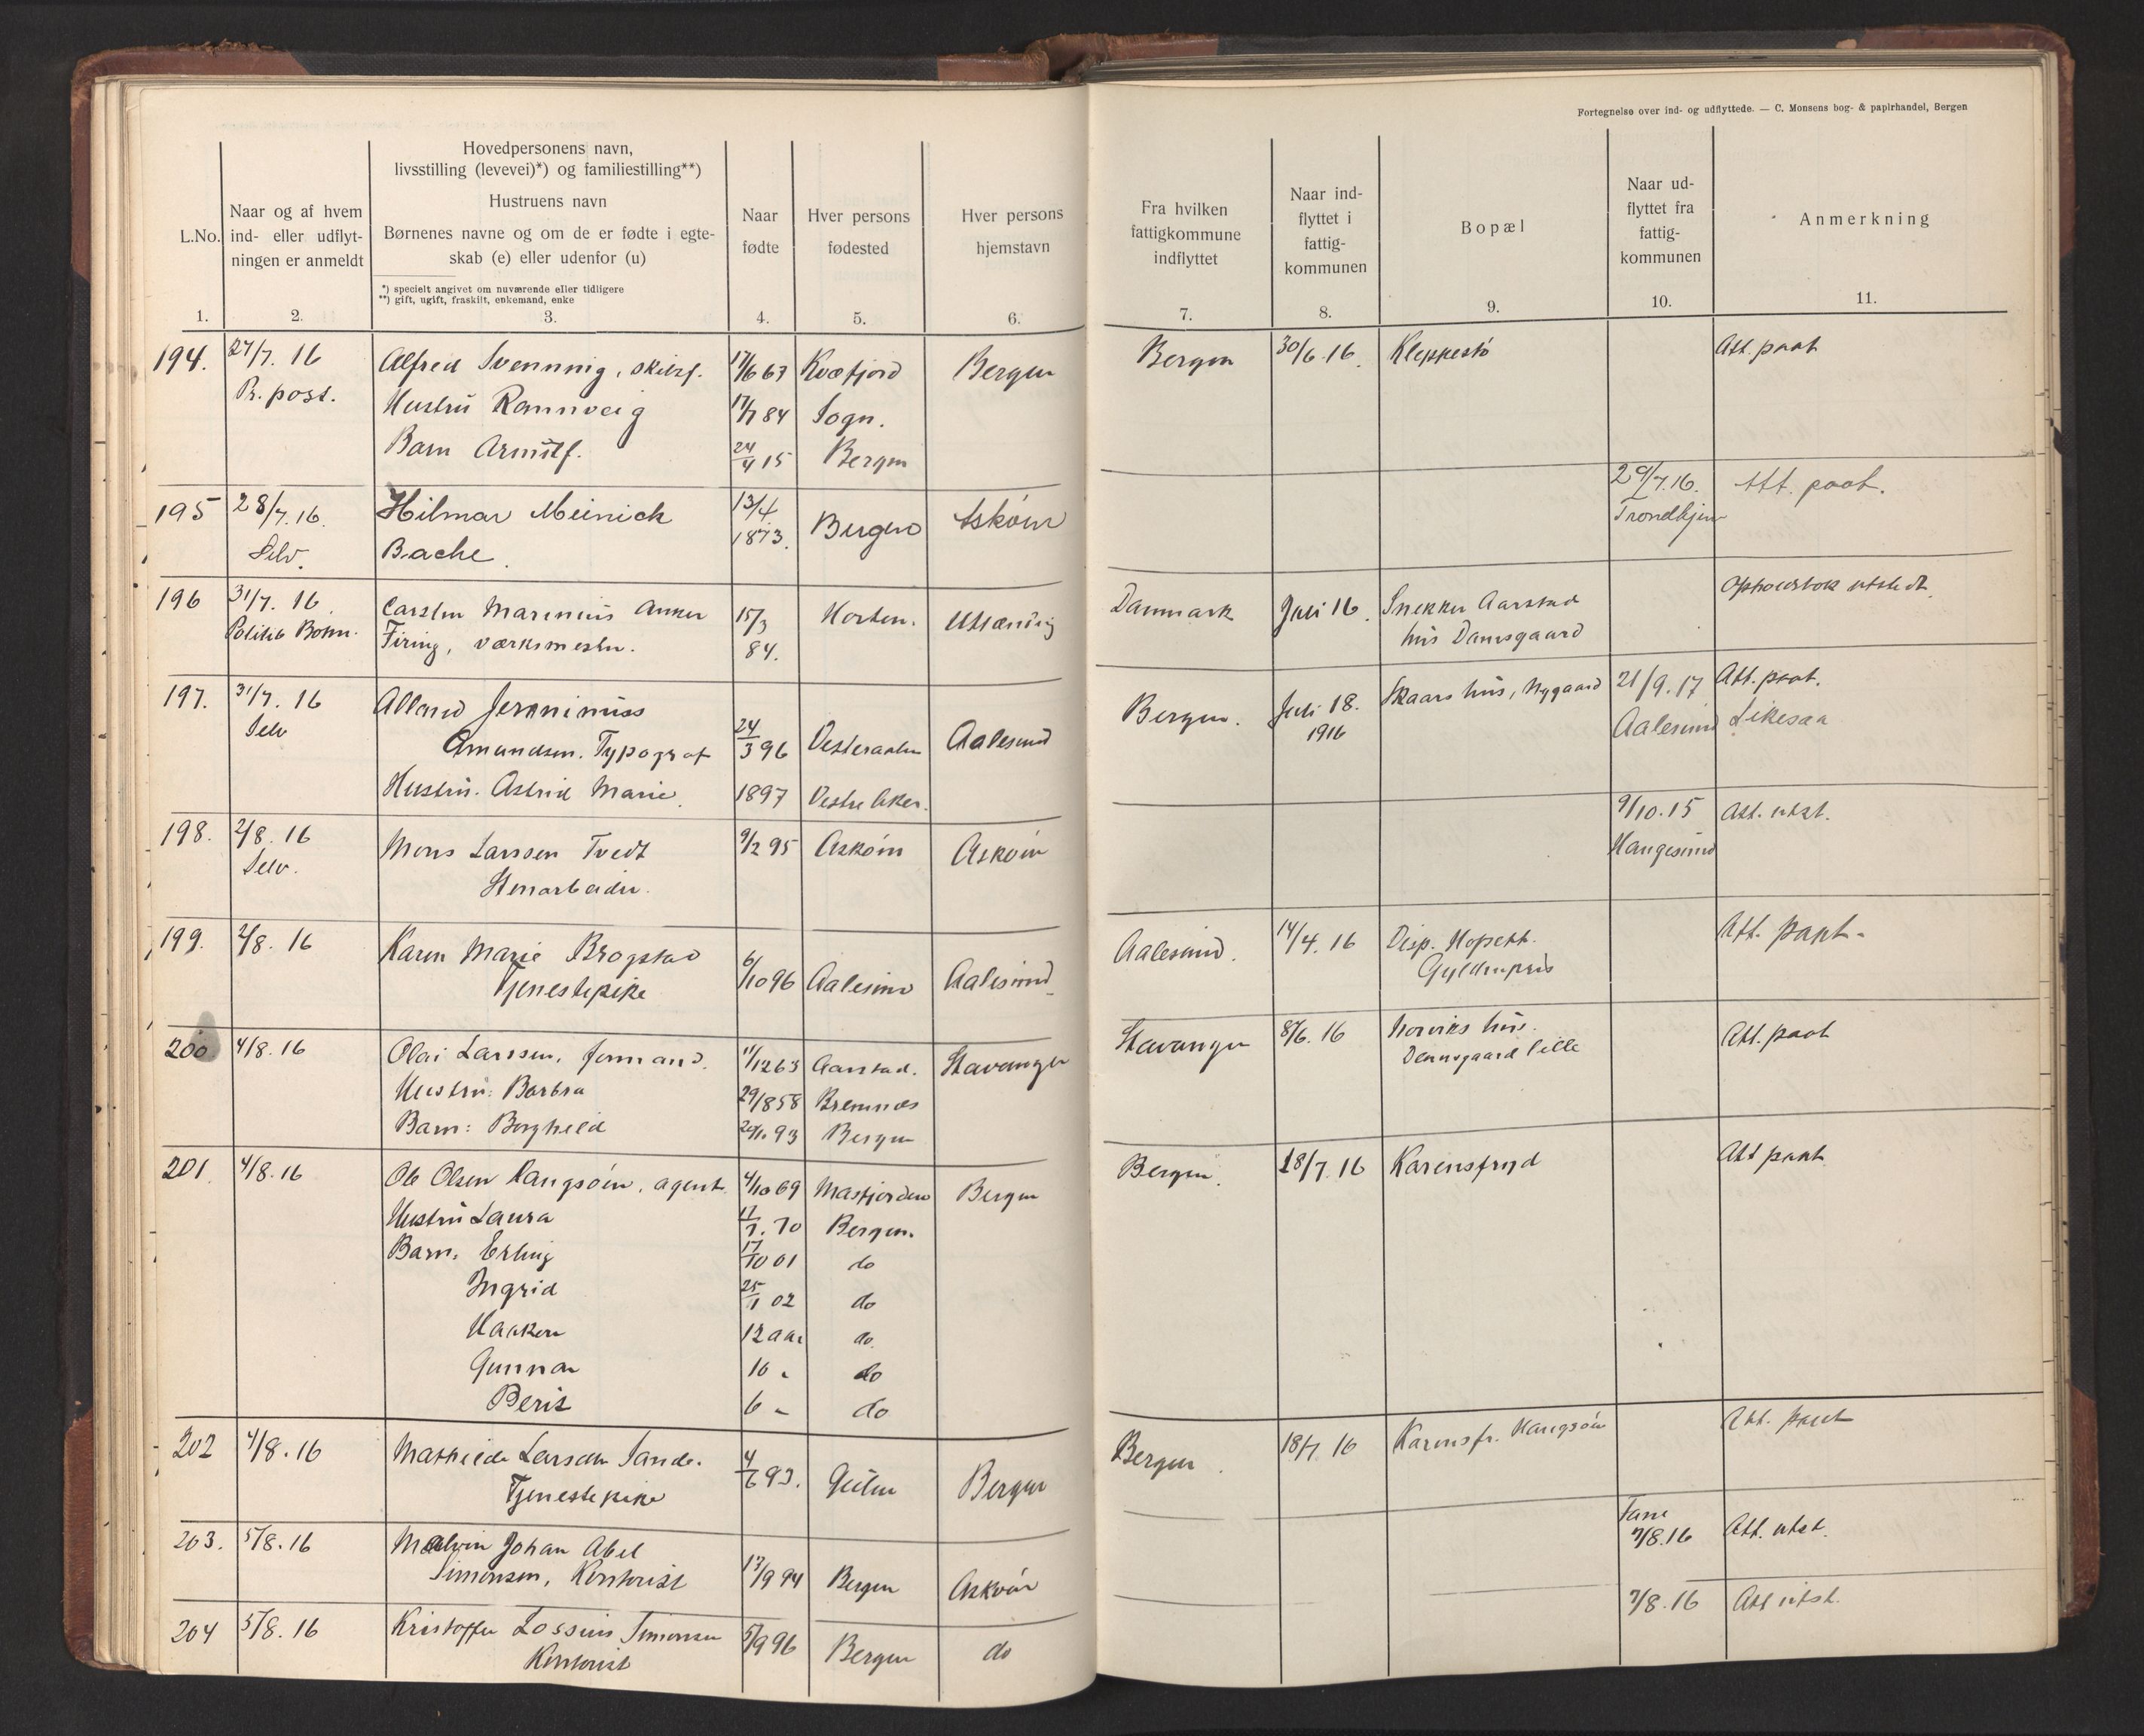 Fortegnelse over ind- og udflyttede. — C. Monsens bog- & papirhandel, Bergen
L.No.
1.
Naar og af hvem
ind- eller udflyt-
ningen er anmeldt
2.
Hovedpersonens navn,
livsstilling (levevei)*) og familiestilling**)
Hustruens navn
Børnenes navne og om de er fødte i egte-
skab (e) eller udenfor (u)
*) specielt angivet om nuværende eller tidligere
**) gift, ugift, fraskilt, enkemand, enke
3.
Naar
fødte
4.
Hver persons
fødested
5.
Hver persons
hjemstavn
6.
Fra hvilken
fattigkommune
indflyttet
7.
Naar ind-
flyttet i
fattig-
kommunen
8.
Bopæl
9.
Naar ud-
flyttet fra
fattig-
kommunen
10.
Anmerkning
11.
194. 27/7. 16 Alfred Svenning, 17/6 67 Kvæfjord Bergen Bergen 30/6 16. Kleppestö Att. paat
Pr. post. Hustru Rannveig 17/7 84 Sogn.
Barn Arnulf. 24/4 15 Bergen
195 28/7. 16. Hilmar Meinick 13/4 Bergen Askøen 29/7.16. Att. paat.
Selv. Bache 1873. Trondhjem
196 31/7. 16. Carsten Marenius Anker 15/3 Horten. Utlænding Danmark Juli 16. Snekker Aarstad Opholdsbok utstedt.
Politib Bohn. Firing, værksmester. 84. hus Damsgaard
197. 31/7. 16 Jeronimus Bergen. Juli 18. Skaars hus, Nygaard 21/9. 17 Att. paat.
Selv Amundsen. Typograf 24/3 96 Vesteraalen Aalesund 1916 Aalesund Likesaa
Hustru. Astrid Marie. 1897 Vestre Aker.
198. 2/8. 16 Mons Larssen Tvedt 9/2 95 Askøen Askøen 9/10. 15 Att. utst.
Selv. Stenarbeider. Haugesund
199. 2/8. 16 Karen Marie Brogstad 6/10 96 Aalesund Aalesund Aalesund. 14/4. 16 Disp. Att. paat.
Tjenestepike Gyldenpris
200. 4/8. 16 Olai Larssen, formand. 11/12 63 Aarstad. Stavanger Stavanger 8/6. 16 Norviks hus. Att. paat
Hustru: Barbra 29/8 58 Bremnes Damsgaard lille
Barn: Borghild 93 Bergen
201. 4/8. 16 Ole Olsen Haugsøen, agent. 4/10 69 Masfjorden Bergen Bergen. 18/7. 16 Karensfryd Att paat
Hustru Laura 17/7. 70 Bergen.
Barn. Erling 17/10 01 do
Ingrid 25/1 02 do
Haakon 12 aar do.
Gunnar 10 " do
Berit 6 " do
202 4/8. 16 Mathilde Larsen Sande. 4/6 93. Gulen Bergen Bergen. 18/7. 16 Karensfr. Haugsøen Att. paat
Tjenestepike
203. 5/8. 16 Malvin Johan Abel Fane Att. utst.
Simonsen, Kontorist 17/9 94 Bergen Askøen 7/8. 16
204 5/8. 16 Kristoffer Lossius Simonsen 5/9 96 Bergen do 7/8. 16 Att utst.
Kontorist